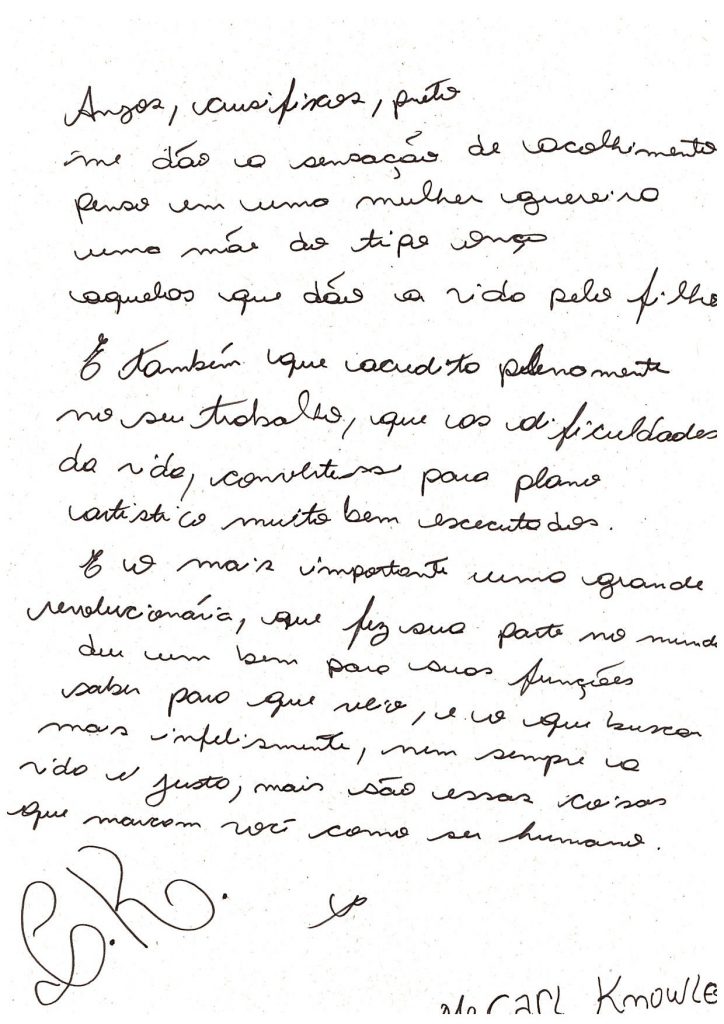 Anzos, causifixos, preto
me dão a sensação de acolhimento
penso em uma mulher guereira
uma mãe do tipo onça
aquelas que dão a vida pelo filho
E também que acredito plenamente
no seu trabalho, que as dificuldades
da vida, converteu para plano
artistico muito bem esecutados.
E o mais importante uma grande
revolucionária, que fez sua parte no mundo
deu um bem para suas funções
saber para que veio, e o que buscar
mais infelismente, nem sempre a
vida e justa, mais são essas coisas
que marcam você como ser humano.
G.R.
Mr Carl Knowle